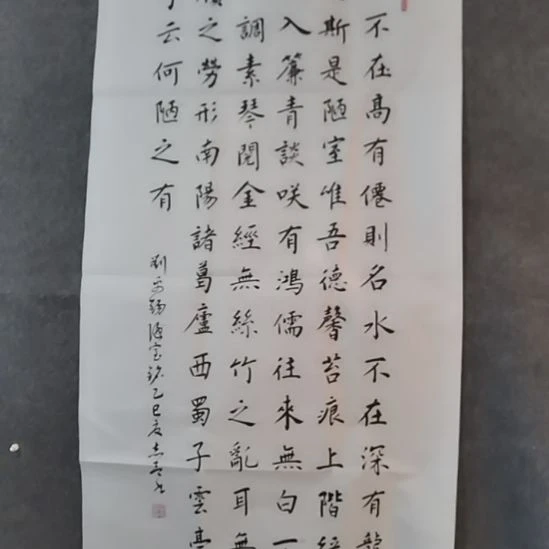 不在高有僊則名水不在深有龍
斯是陋室唯吾德馨苔痕上階
入簾青談咲有鴻儒往來無白
調素琴閱金經無絲竹之亂耳無
牘之勞形南陽諸葛廬西蜀子雲亭
云何陋之有
劉禹錫陋室銘乙巳夏